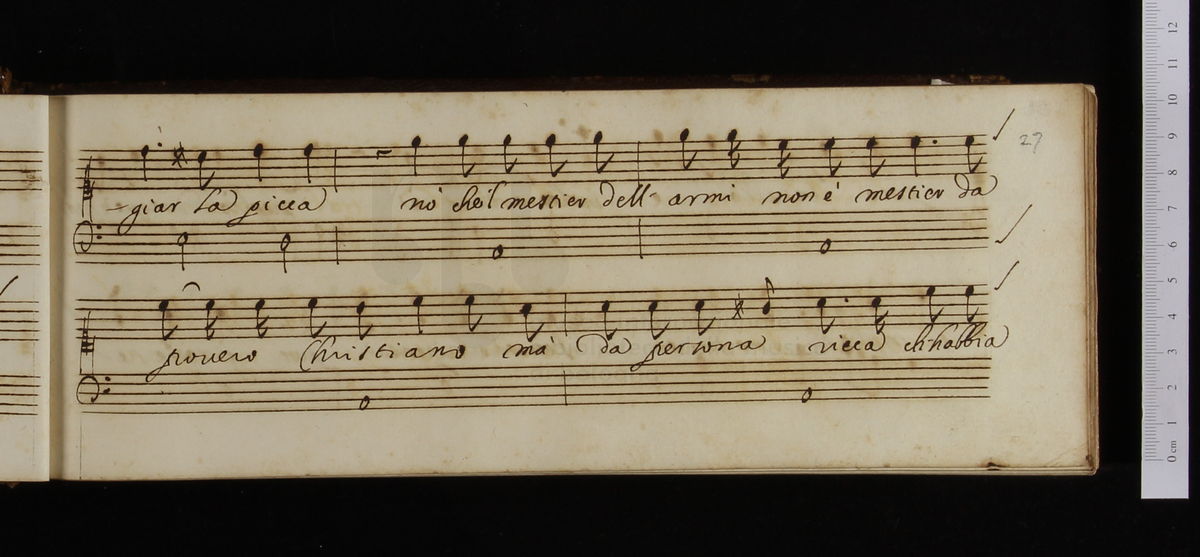 27
-giar la picca nò che'l mestier dell' armi non è mestier da
povero Christiano mà da persona ricca ch'habbia
12
11
10
9
8
7
6
5
4
3
2
1
0 cm